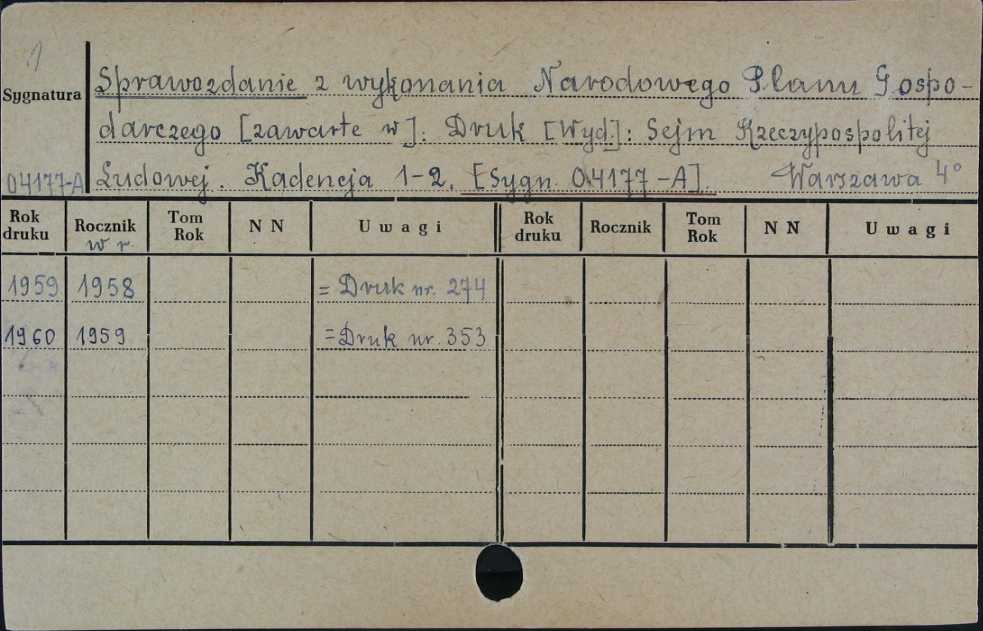 1
Sygnatura
Sprawozdanie z wykonania Narodowego Planu Gospo-
darczego [zawarte w]: Druk [Wyd.]: Sejm Rzeczypospolitej
04177-A Ludowej. Kadencja 1-2. [Sygn. 04177-A]. Warszawa 4°
Rok druku Rocznik w r. Tom Rok NN Uwagi Rok druku Rocznik Tom Rok NN Uwagi
1959 1958 = Druk nr. 274
1960 1959 = Druk nr. 353